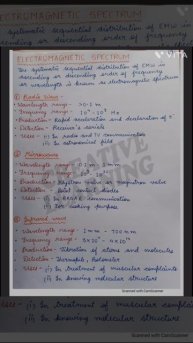 ELECTROMAGNETIC SPECTRUM
systematic sequential distribution of EMW in
ascending or descending order of frequency
VITA
ELECTROMAGNETIC SPECTRUM
The systematic sequential distribution of EMW in
ascending or descending order of frequency
or wavelength is known as electromagnetic spectrum
① Radio Wave
Wavelength range - >0.1 m
Frequency range -
Production - Rapid acceleration and deceleration of e
Detection - Receiver's aerials
Uses - (i) In radio and TV communication
(ii) In astronomical field
② Microwave
Wavelength range - 0.1 m - 1 mm
Frequency range -
Production - Klystron valve or magnetron valve
Detection - Point contact diodes
Uses - (i) In RADAR communication
(ii) For cooking purpose
③ Infrared wave
Wavelength range - 1 mm - 700 nm
Frequency range -
Production - Vibration of atoms and molecules
Detection - Thermopile, Bolometer
Uses - (i) In treatment of muscular complaints
(ii) In knowing molecular structure
Scanned with CamScanner
Uses - (i) In treatment of muscular compla
(ii) In knowing molecular structure
Scanned with CamScanner